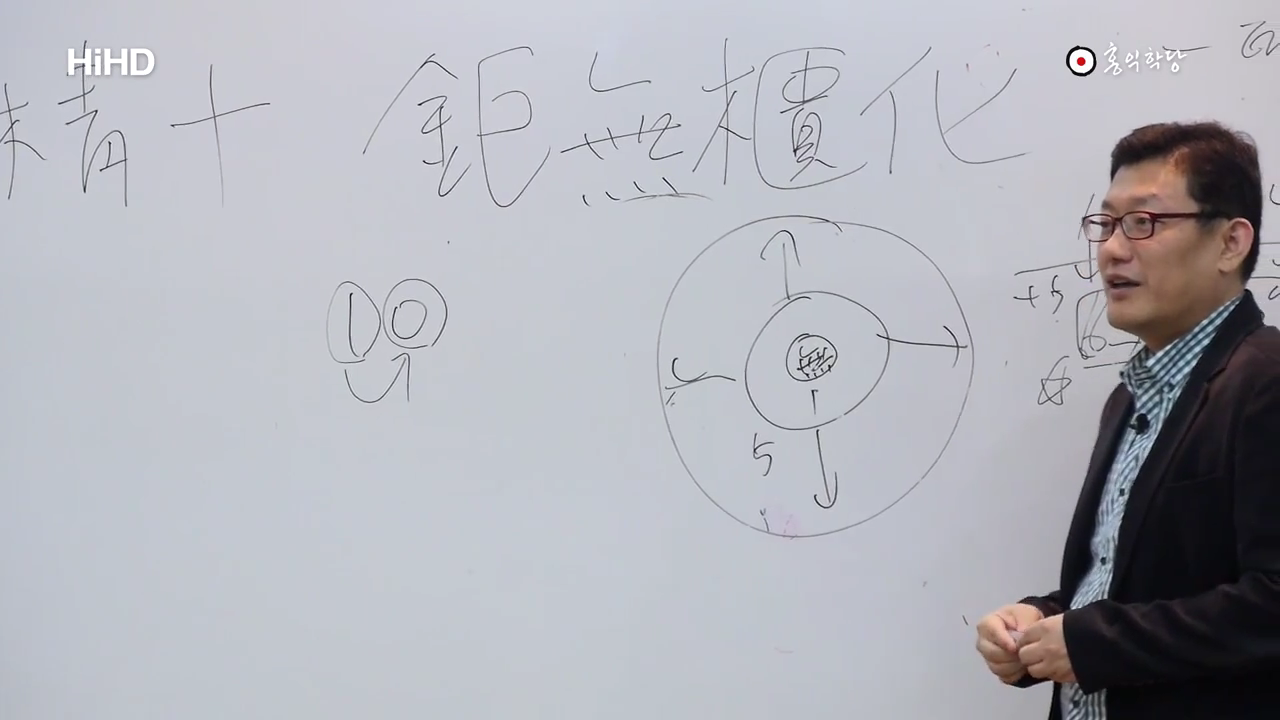 HiHD
홍익학당
積十 鉅無櫃化
1 0
無
1
5
+5